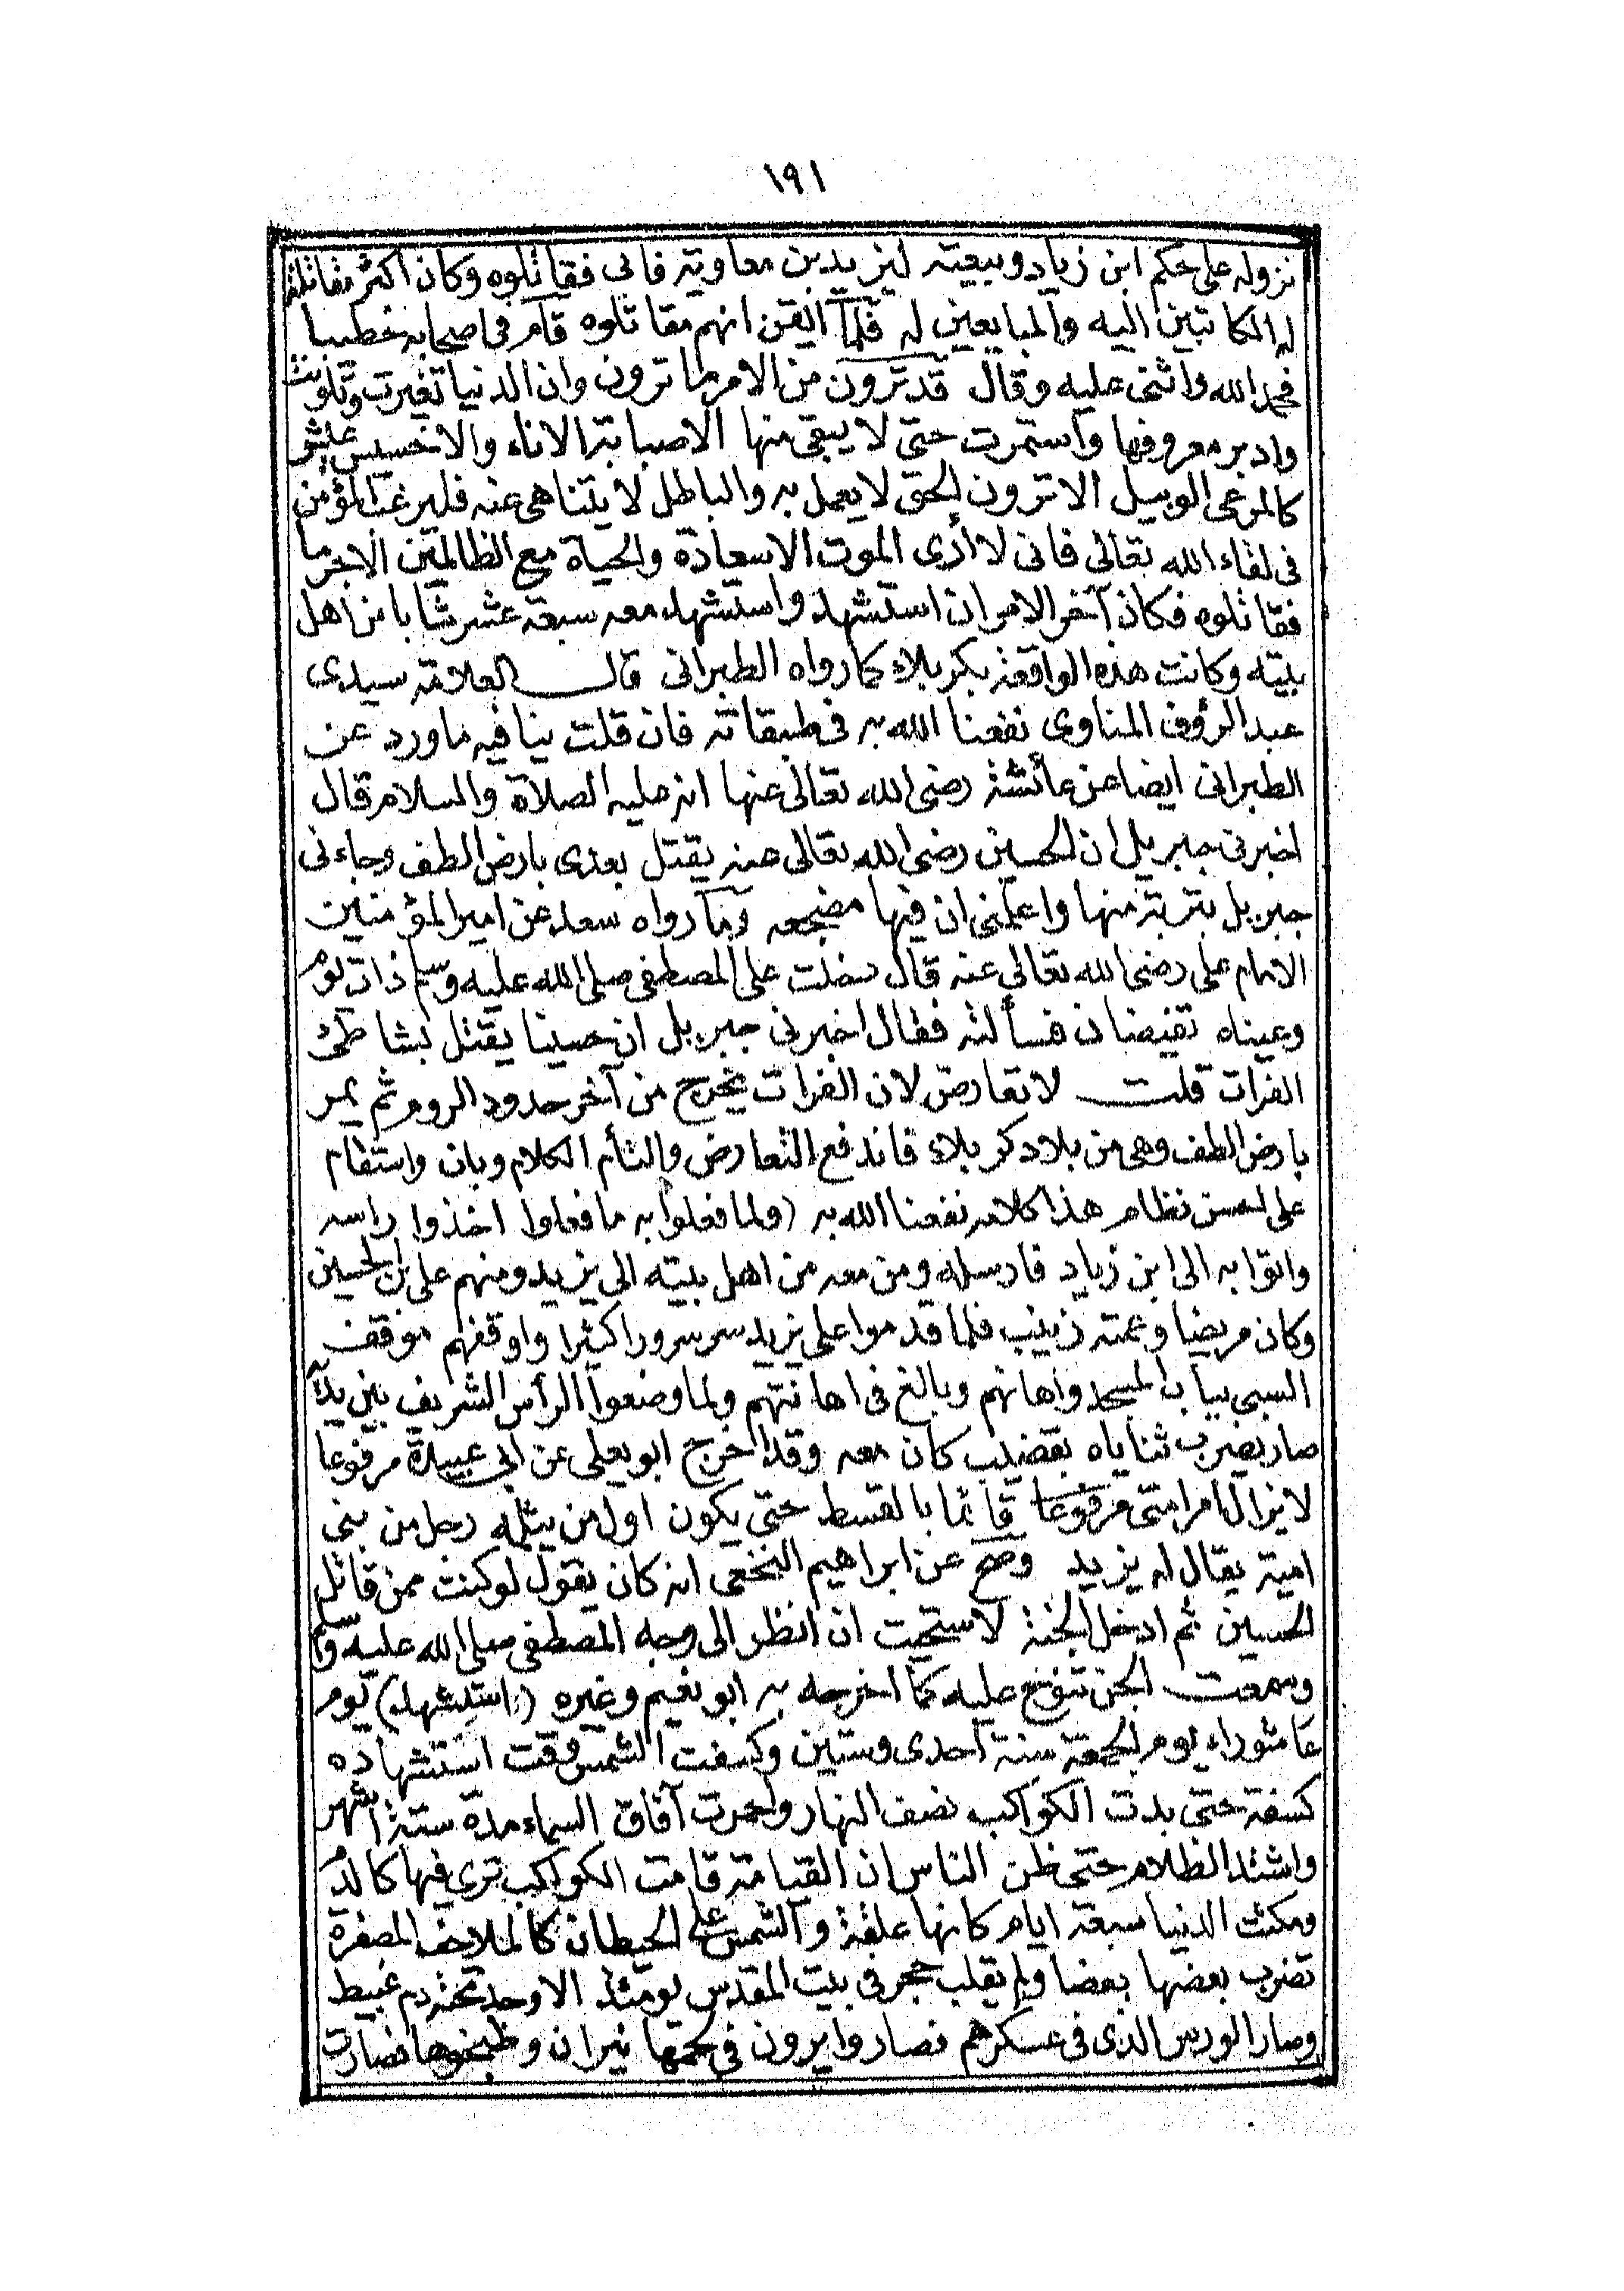 ١٩١
نزوله على حكم ابن زياد وبيعته ليزيد بن معاوية فابى فقاتلوه وكان اكثر مقاتلة
له المكاتبين اليه والمبايعين له فلما ايقن انهم مقاتلوه قام فى اصحابه خطيبا
فحمد الله واثنى عليه وقال قد ترون من الامر ما ترون وان الدنيا تغيرت وتلونت
وادبر معروفها واستمرت حتى لا يبقى منها الا صبابة الاناء والا خسيس عيش
كالمرعى الوبيل الا ترون الحق لا يعمل به والباطل لا يتناهى عنه فليرغب المؤمن
فى لقاء الله تعالى فانى لا أرى الموت الا سعادة والحياة مع الظالمين الا جرما
فقاتلوه فكان آخر الامر ان استشهد واستشهد معه سبعة عشر شابا من اهل
بيته وكانت هذه الواقعة بكربلاء كما رواه الطبرانى قال العلامة سيدى
عبد الرؤف المناوى نفعنا الله به فى طبقاته فان قلت ينافيه ما ورد عن
الطبرانى ايضا عن عائشة رضى الله تعالى عنها انه عليه الصلاة والسلام قال
اخبرنى جبريل ان الحسين رضى الله تعالى عنه يقتل بعدى بارض الطف وجاءنى
جبريل بتربة منها واعلمنى ان فيها مضجعه وما رواه سعد عن امير المؤمنين
الامام على رضى الله تعالى عنه قال دخلت على المصطفى صلى الله عليه وسلم ذات يوم
وعيناه تفيضان فسألته فقال اخبرنى جبريل ان حسينا يقتل بشاطئ
الفرات قلت لا تعارض لان الفرات يخرج من آخر حدود الروم ثم يمر
بارض الطف وهى من بلاد كربلاء فاندفع التعارض والتأم الكلام وبان واستقام
على احسن نظام هذا كلامه نفعنا الله به (ولما فعلوا به ما فعلوا اخذوا راسه
واتوا به الى ابن زياد فارسله ومن معه من اهل بيته الى يزيد ومنهم على بن الحسين
وكان مريضا وعمته زينب فلما قدموا على يزيد سر سرورا كثيرا واوقفهم موقف
السبى بباب المسجد واهانهم وبالغ فى اهانتهم ولما وضعوا الرأس الشريف بين يديه
صار يضرب ثناياه بقضيب كان معه وقد اخرج ابو يعلى عن ابى عبيدة مرفوعا
لا يزال امر امتى مرفوعا قائما بالقسط حتى يكون اول من يثلمه رجل من بنى
امية يقال له يزيد وصح عن ابراهيم النخعى انه كان يقول لو كنت ممن قاتل
الحسين ثم ادخل الجنة لاستحيت ان انظر الى وجه المصطفى صلى الله عليه وسلم
وسمعت الجن تنوح عليه كما اخرجه به ابو نعيم وغيره (استشهد) يوم
عاشوراء يوم الجمعة سنة احدى وستين وكسفت الشمس وقت استشهاده
كسفة حتى بدت الكواكب نصف النهار واحمرت آفاق السماء مدة ستة اشهر
واشتد الظلام حتى ظن الناس ان القيامة قامت الكواكب ترى فيها كالدم
ومكثت الدنيا سبعة ايام كانها علقة والشمس على الحيطان كالملاحف المصفرة
تضرب بعضها بعضا ولم يقلب حجر فى بيت المقدس يومئذ الا وجد تحته دم غبيط
وصار الورس الذى فى عسكرهم فصاروا يرون فى لحمها نيران وطبخوها فصارت